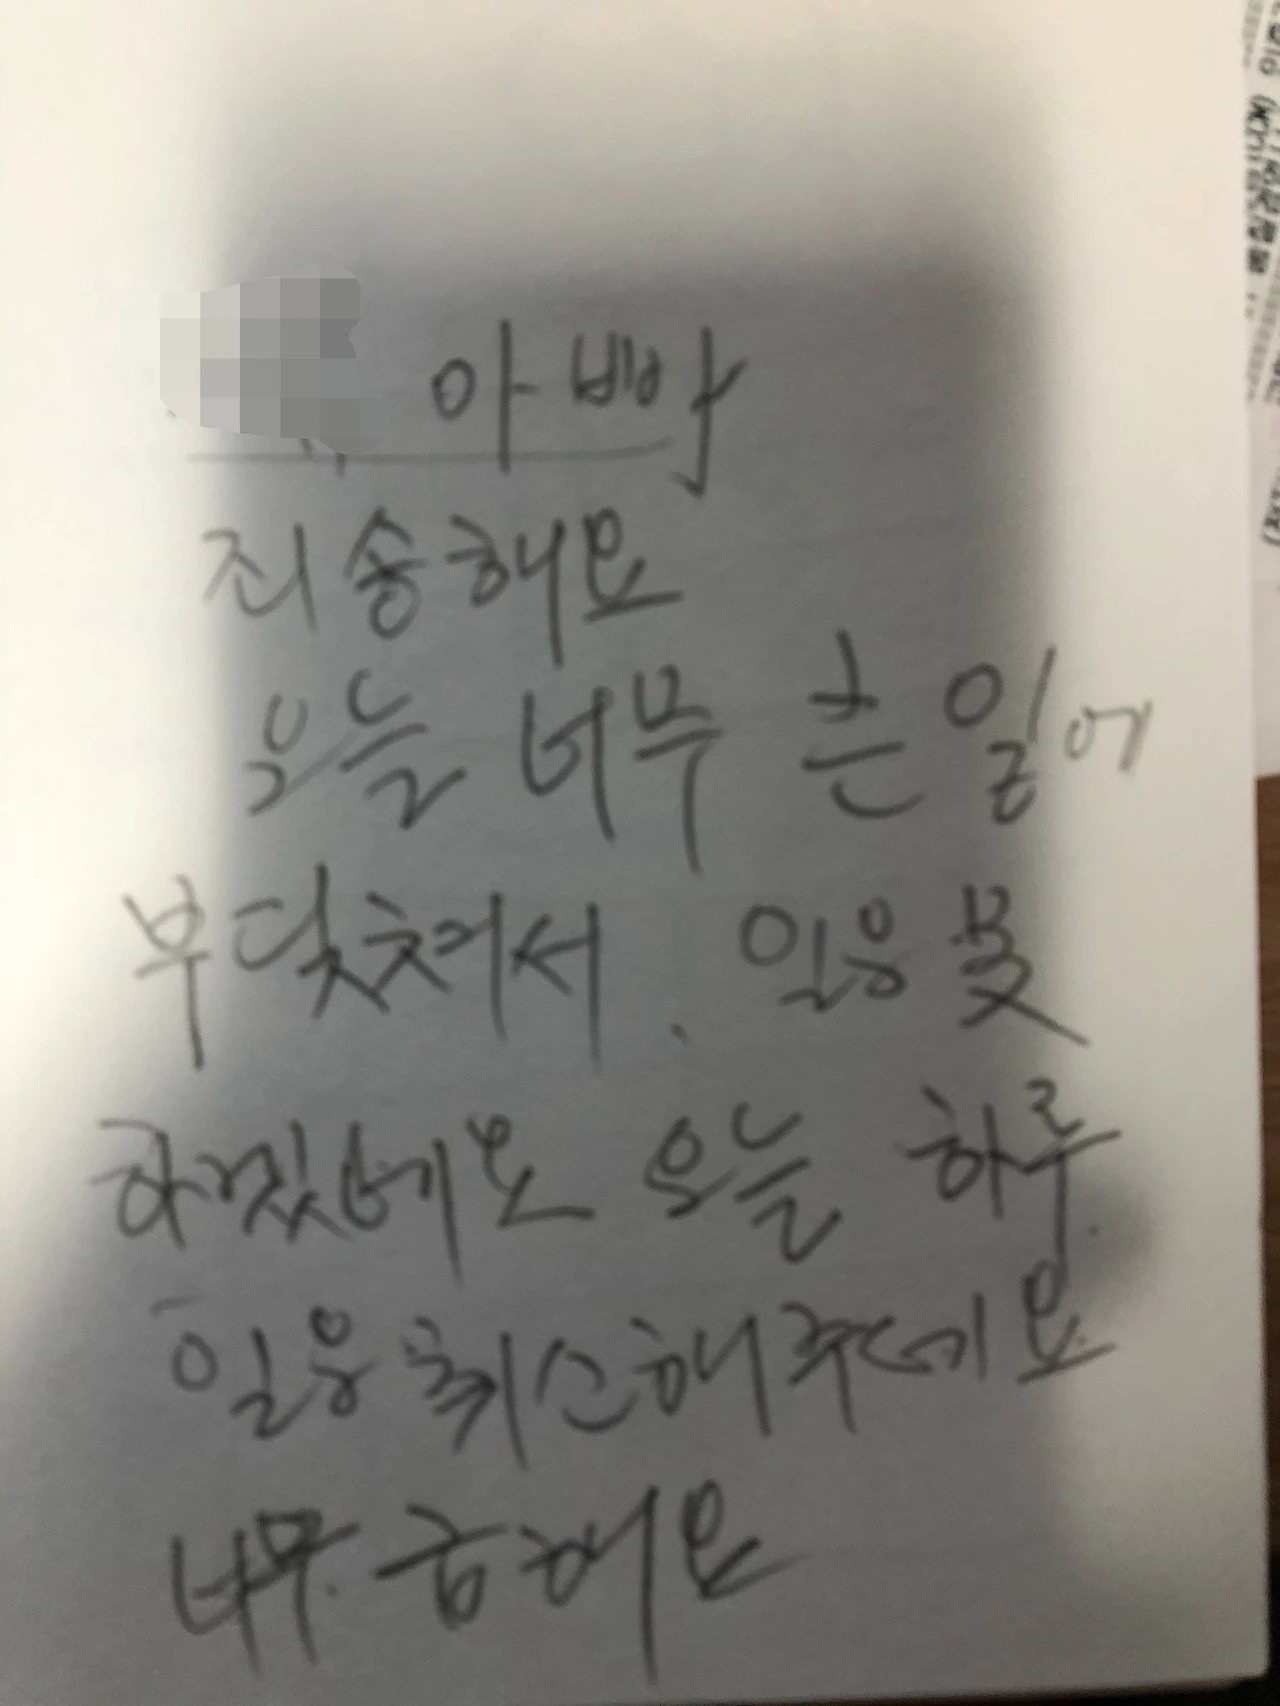 아빠
죄송해요
오늘 너무 큰 일에
부닻쳐서. 일을 못
하겠네요 오늘 하루.
일을 취소해주세요
너무 급해요